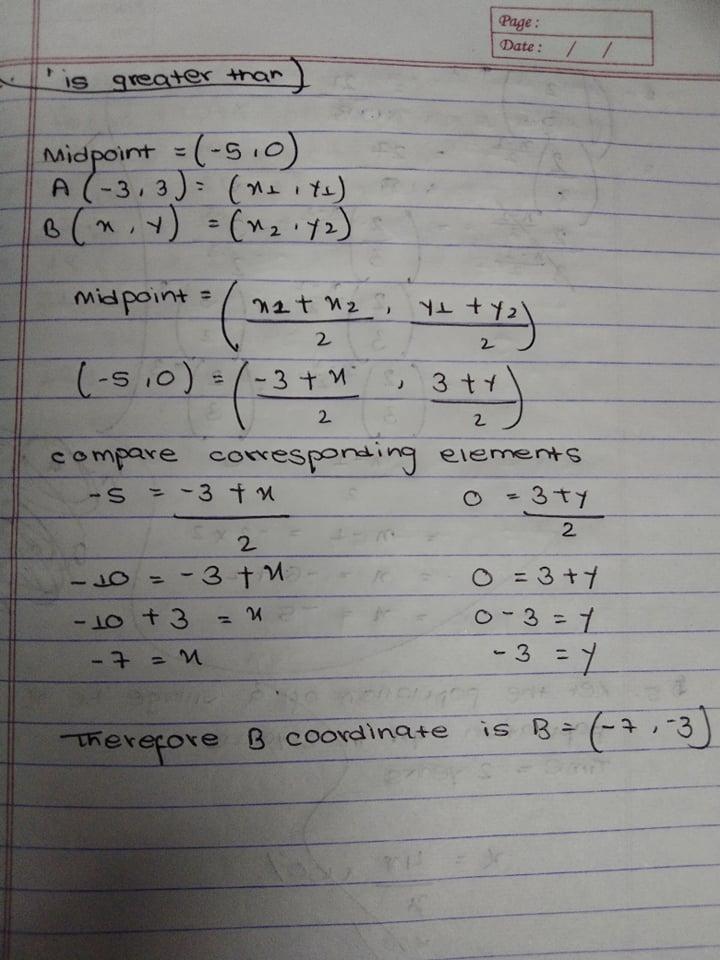 Page :
Date : / /
is greater than )
Midpoint = (-5, 0)
A (-3, 3) = (x1, y1)
B (x, y) = (x2, y2)
midpoint = (x1 + x2 / 2, y1 + y2 / 2)
(-5, 0) = (-3 + x / 2, 3 + y / 2)
compare corresponding elements
-5 = -3 + x / 2 0 = 3 + y / 2
-10 = -3 + x 0 = 3 + y
-10 + 3 = x 0 - 3 = y
-7 = x -3 = y
Therefore B coordinate is B = (-7, -3)